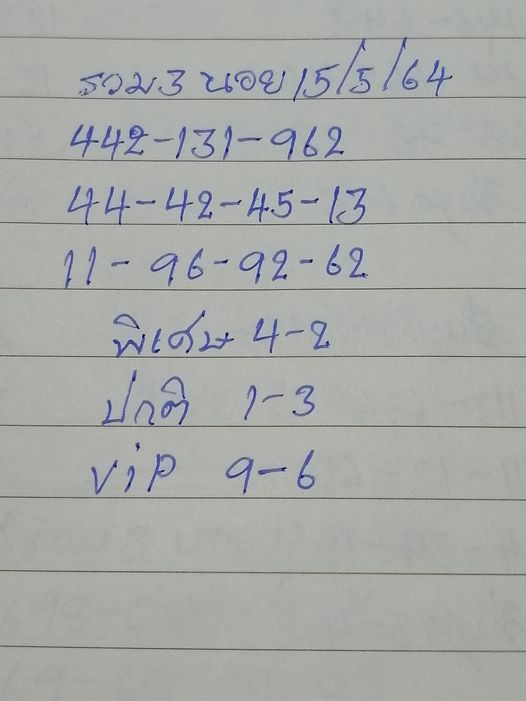 รวม3 นอย 15/5/64
442-131-962
44-42-45-13
11-96-92-62
พิเศษ 4-2
ปกติ 1-3
ViP 9-6